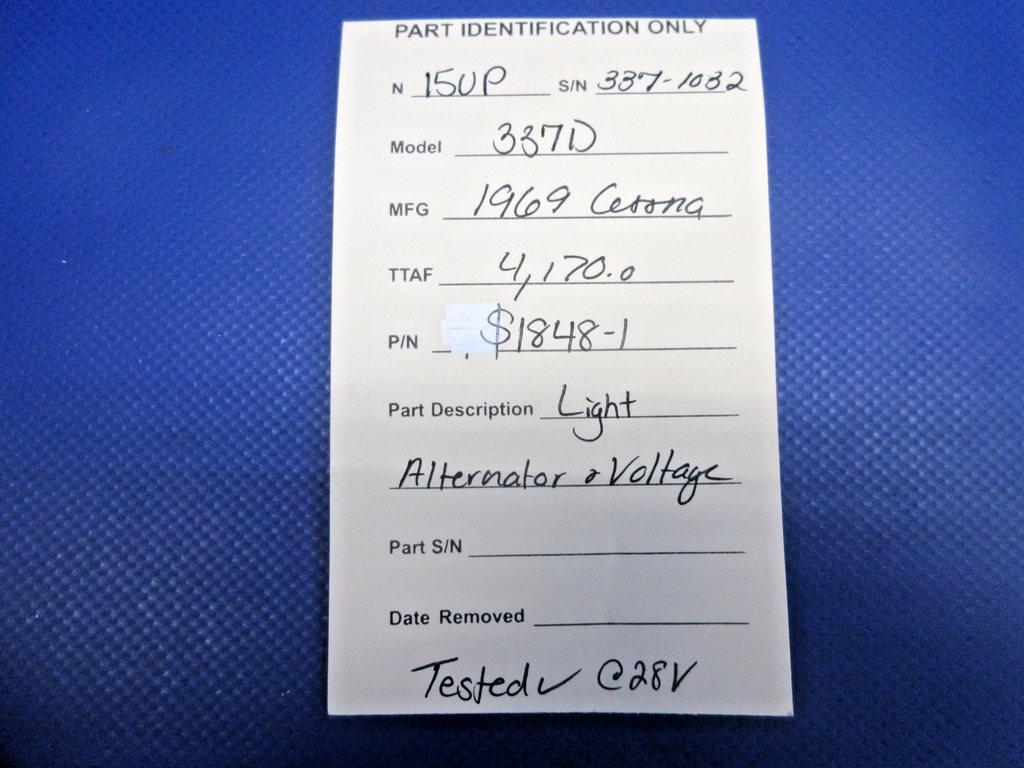 PART IDENTIFICATION ONLY
N 15UP S/N 337-1032
Model 337D
MFG 1969 Cessna
TTAF 4,170.0
P/N $1848-1
Part Description Light
Alternator & Voltage
Part S/N
Date Removed
Tested ✓ @28V